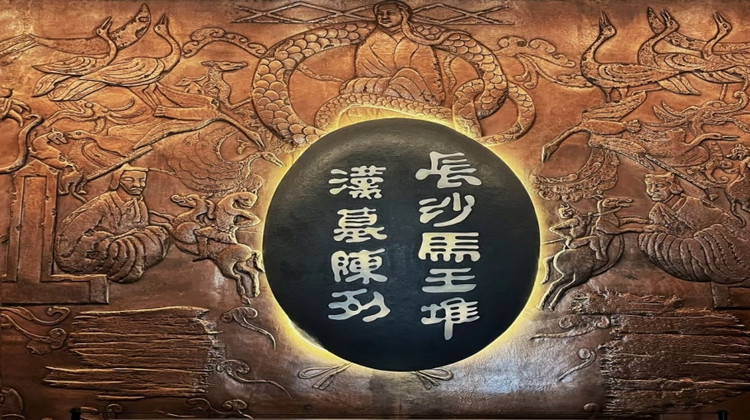 長沙馬王堆
漢墓陳列